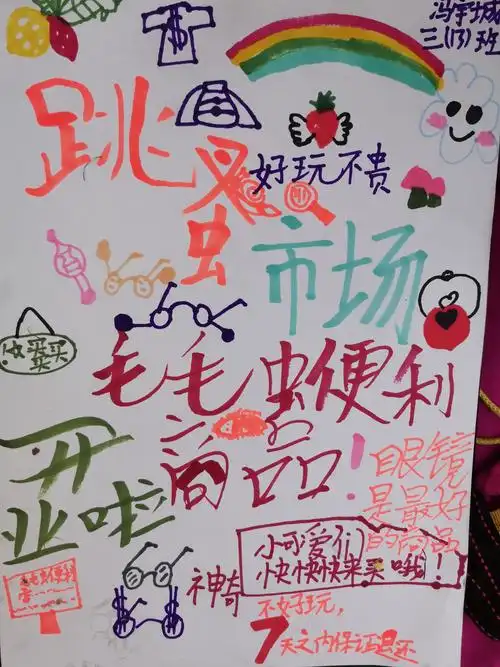 冯宇城
三(13)班
跳蚤
好玩不贵
市场
毛毛虫便利
商品!
开业啦
眼镜
是最好
的商品
小可爱们
快快快来买哦!
神奇
不好玩,
7天之内保证退还